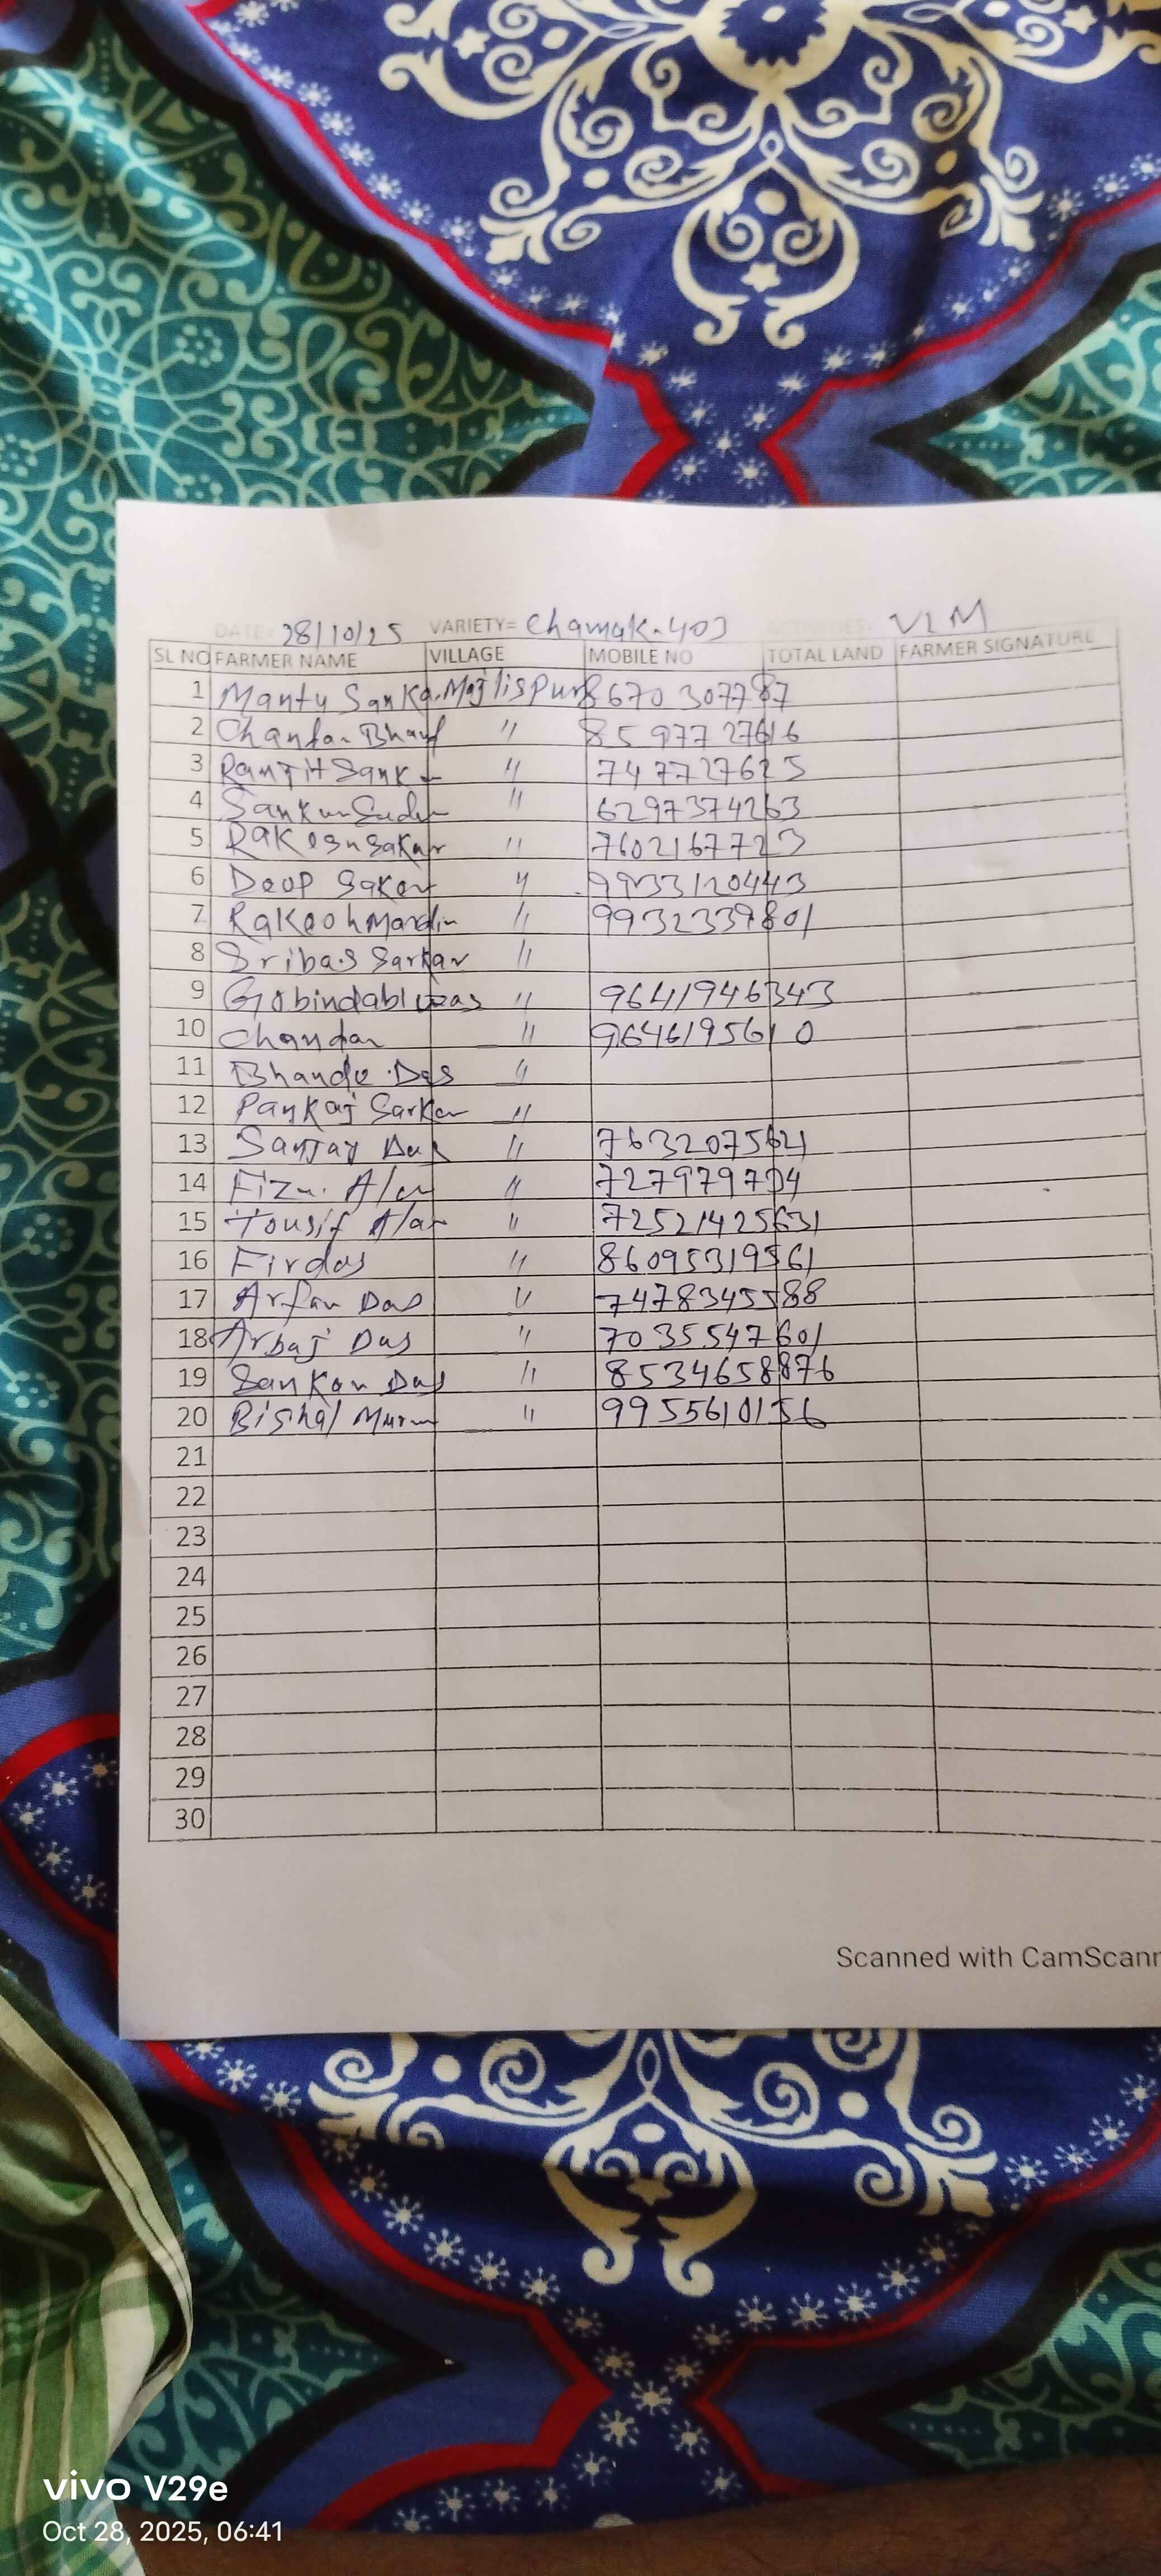 DATE= 28/10/25 VARIETY= Chamak-403 ACTIVITIES= VLM
SL NO FARMER NAME VILLAGE MOBILE NO TOTAL LAND FARMER SIGNATURE
1 Mantu Sarkar Majlispur 8670307787
2 Chanfan Bhauf " 8597727616
3 Ranjit Sank " 747727625
4 Sankur " 6297374263
5 Rakesh Sakar " 7602167723
6 Deop Saker " 9933120443
7 Rakeoh Mardin " 9932339801
8 Sribas Sarkar "
9 Gobindabluzas " 9641946343
10 Chandan " 9646195610
11 Bhande Das "
12 Pankaj Sarkar "
13 Sanjay Das " 7632075621
14 Fizu. Alam " 727979704
15 Tousif Alam " 72521425631
16 Firdos " 86095319561
17 Arfan Das " 7478345588
18 Arbaj Das " 7035547601
19 Sankar Das " 8534658876
20 Bishal Murmu " 9955610156
21
22
23
24
25
26
27
28
29
30
Scanned with CamScann
vivo V29e
Oct 28, 2025, 06:41